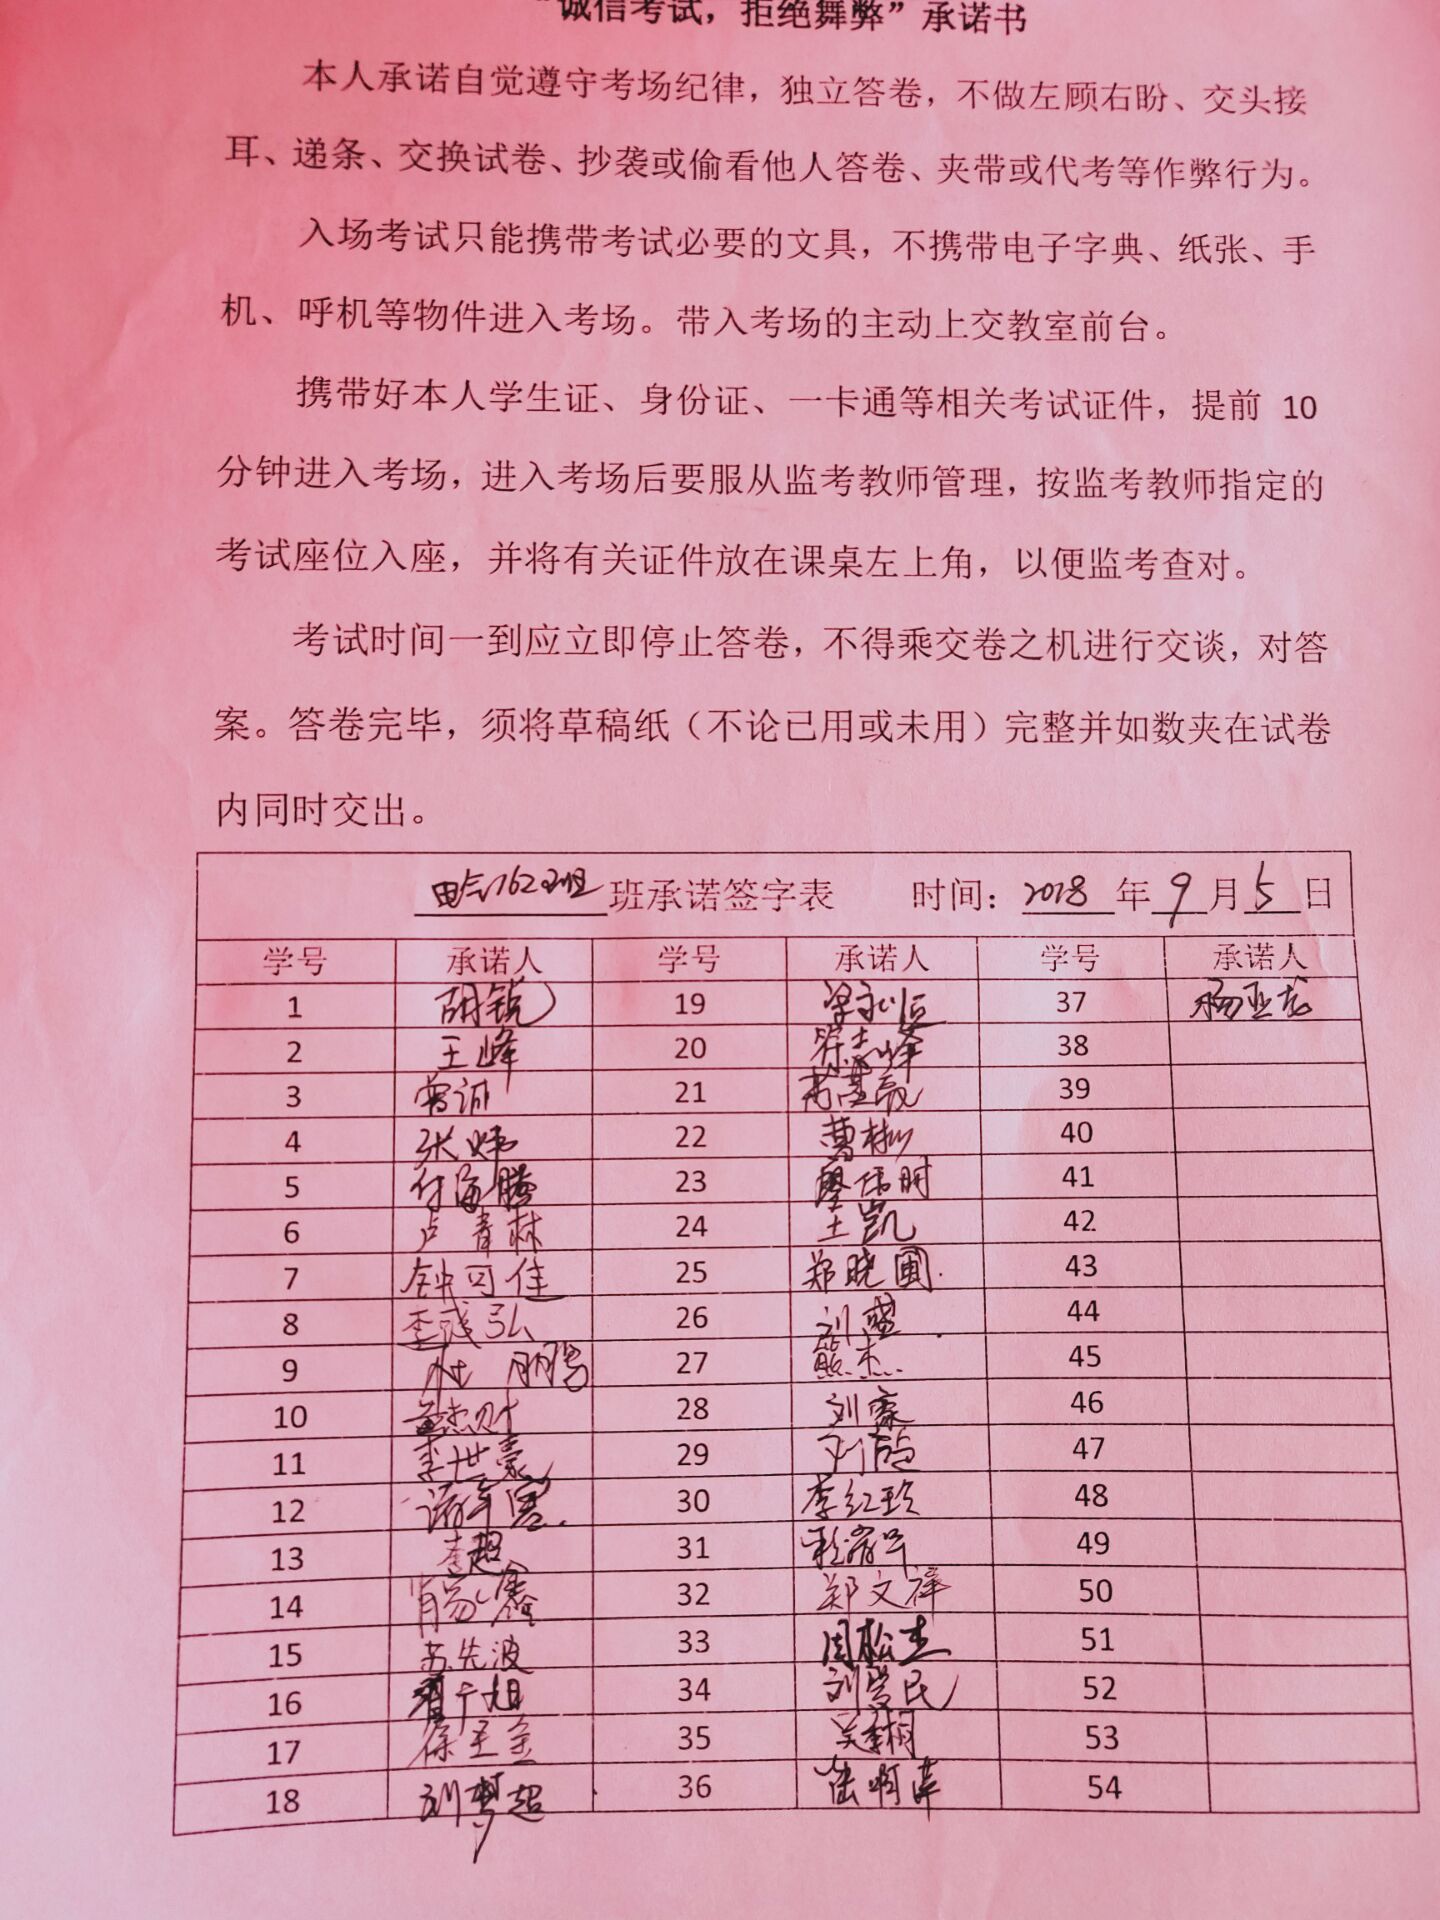 “诚信考试，拒绝舞弊”承诺书
本人承诺自觉遵守考场纪律，独立答卷，不做左顾右盼、交头接
耳、递条、交换试卷、抄袭或偷看他人答卷、夹带或代考等作弊行为。
入场考试只能携带考试必要的文具，不携带电子字典、纸张、手
机、呼机等物件进入考场。带入考场的主动上交教室前台。
携带好本人学生证、身份证、一卡通等相关考试证件，提前 10
分钟进入考场，进入考场后要服从监考教师管理，按监考教师指定的
考试座位入座，并将有关证件放在课桌左上角，以便监考查对。
考试时间一到应立即停止答卷，不得乘交卷之机进行交谈，对答
案。答卷完毕，须将草稿纸（不论已用或未用）完整并如数夹在试卷
内同时交出。
电气162班班承诺签字表 时间：2018 年 9 月 5 日
学号 承诺人 学号 承诺人 学号 承诺人
1 胡锐 19 37 杨亚龙
2 王峰 20 38
3 曾诚 21 39
4 张炜 22 曹彬 40
5 付海腾 23 廖伟明 41
6 卢青林 24 王凯 42
7 钟可佳 25 郑晓圃 43
8 26 刘盛 44
9 杜鹏 27 熊杰 45
10 28 刘豪 46
11 李世豪 29 47
12 30 李红玲 48
13 李超 31 49
14 32 郑文祥 50
15 苏先波 33 周松杰 51
16 34 刘爱民 52
17 35 53
18 刘梦超 36 54